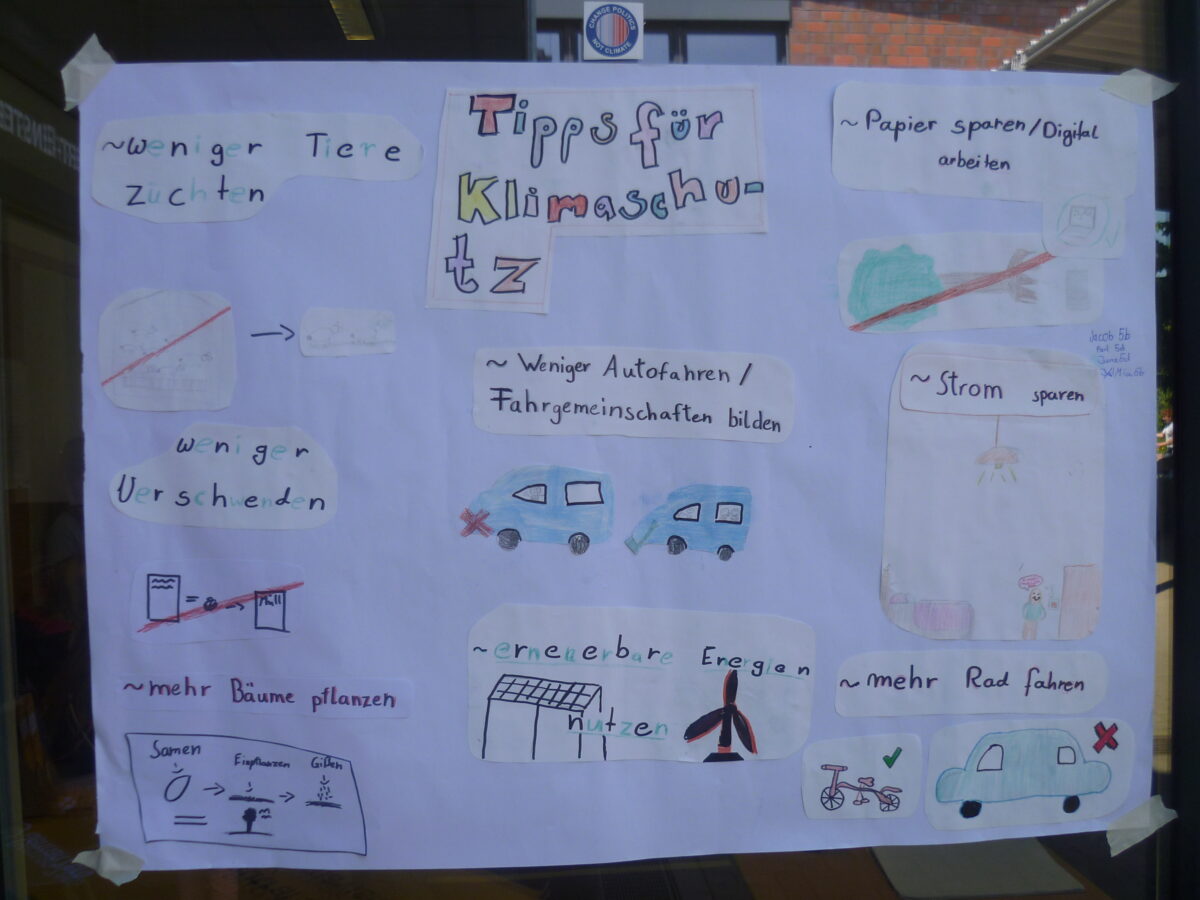 CHANGE POLITICS
NOT CLIMATE
Tipps für
Klimaschu-
tz
~weniger Tiere
züchten
weniger
Verschwenden
Müll
~mehr Bäume pflanzen
Samen
Einpflanzen
Gißen
~ Weniger Autofahren /
Fahrgemeinschaften bilden
~ erneuerbare Energien
nutzen
~ Papier sparen/Digital
arbeiten
Jacob 5b
~ Strom sparen
~ mehr Rad fahren